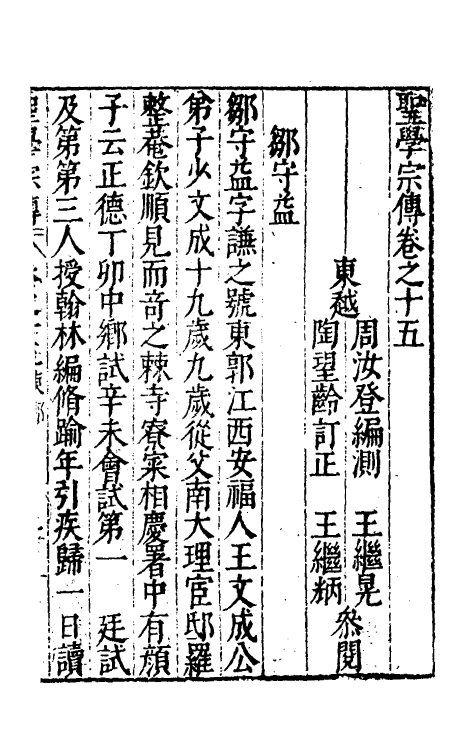 聖學宗傳卷之十五
東越
周汝登編測　王繼晃
陶望齡訂正　王繼炳
叅閱
鄒守益
鄒守益字謙之號東郭江西安福人王文成公
弟子少文成十九歲九歲從父南大理宦邸羅
整菴欽順見而竒之棘寺寮寀相慶署中有顏
子云正德丁卯中鄉試辛未會試第一　廷試
及第第三人授翰林編脩踰年引疾歸一日讀
聖學宗傳